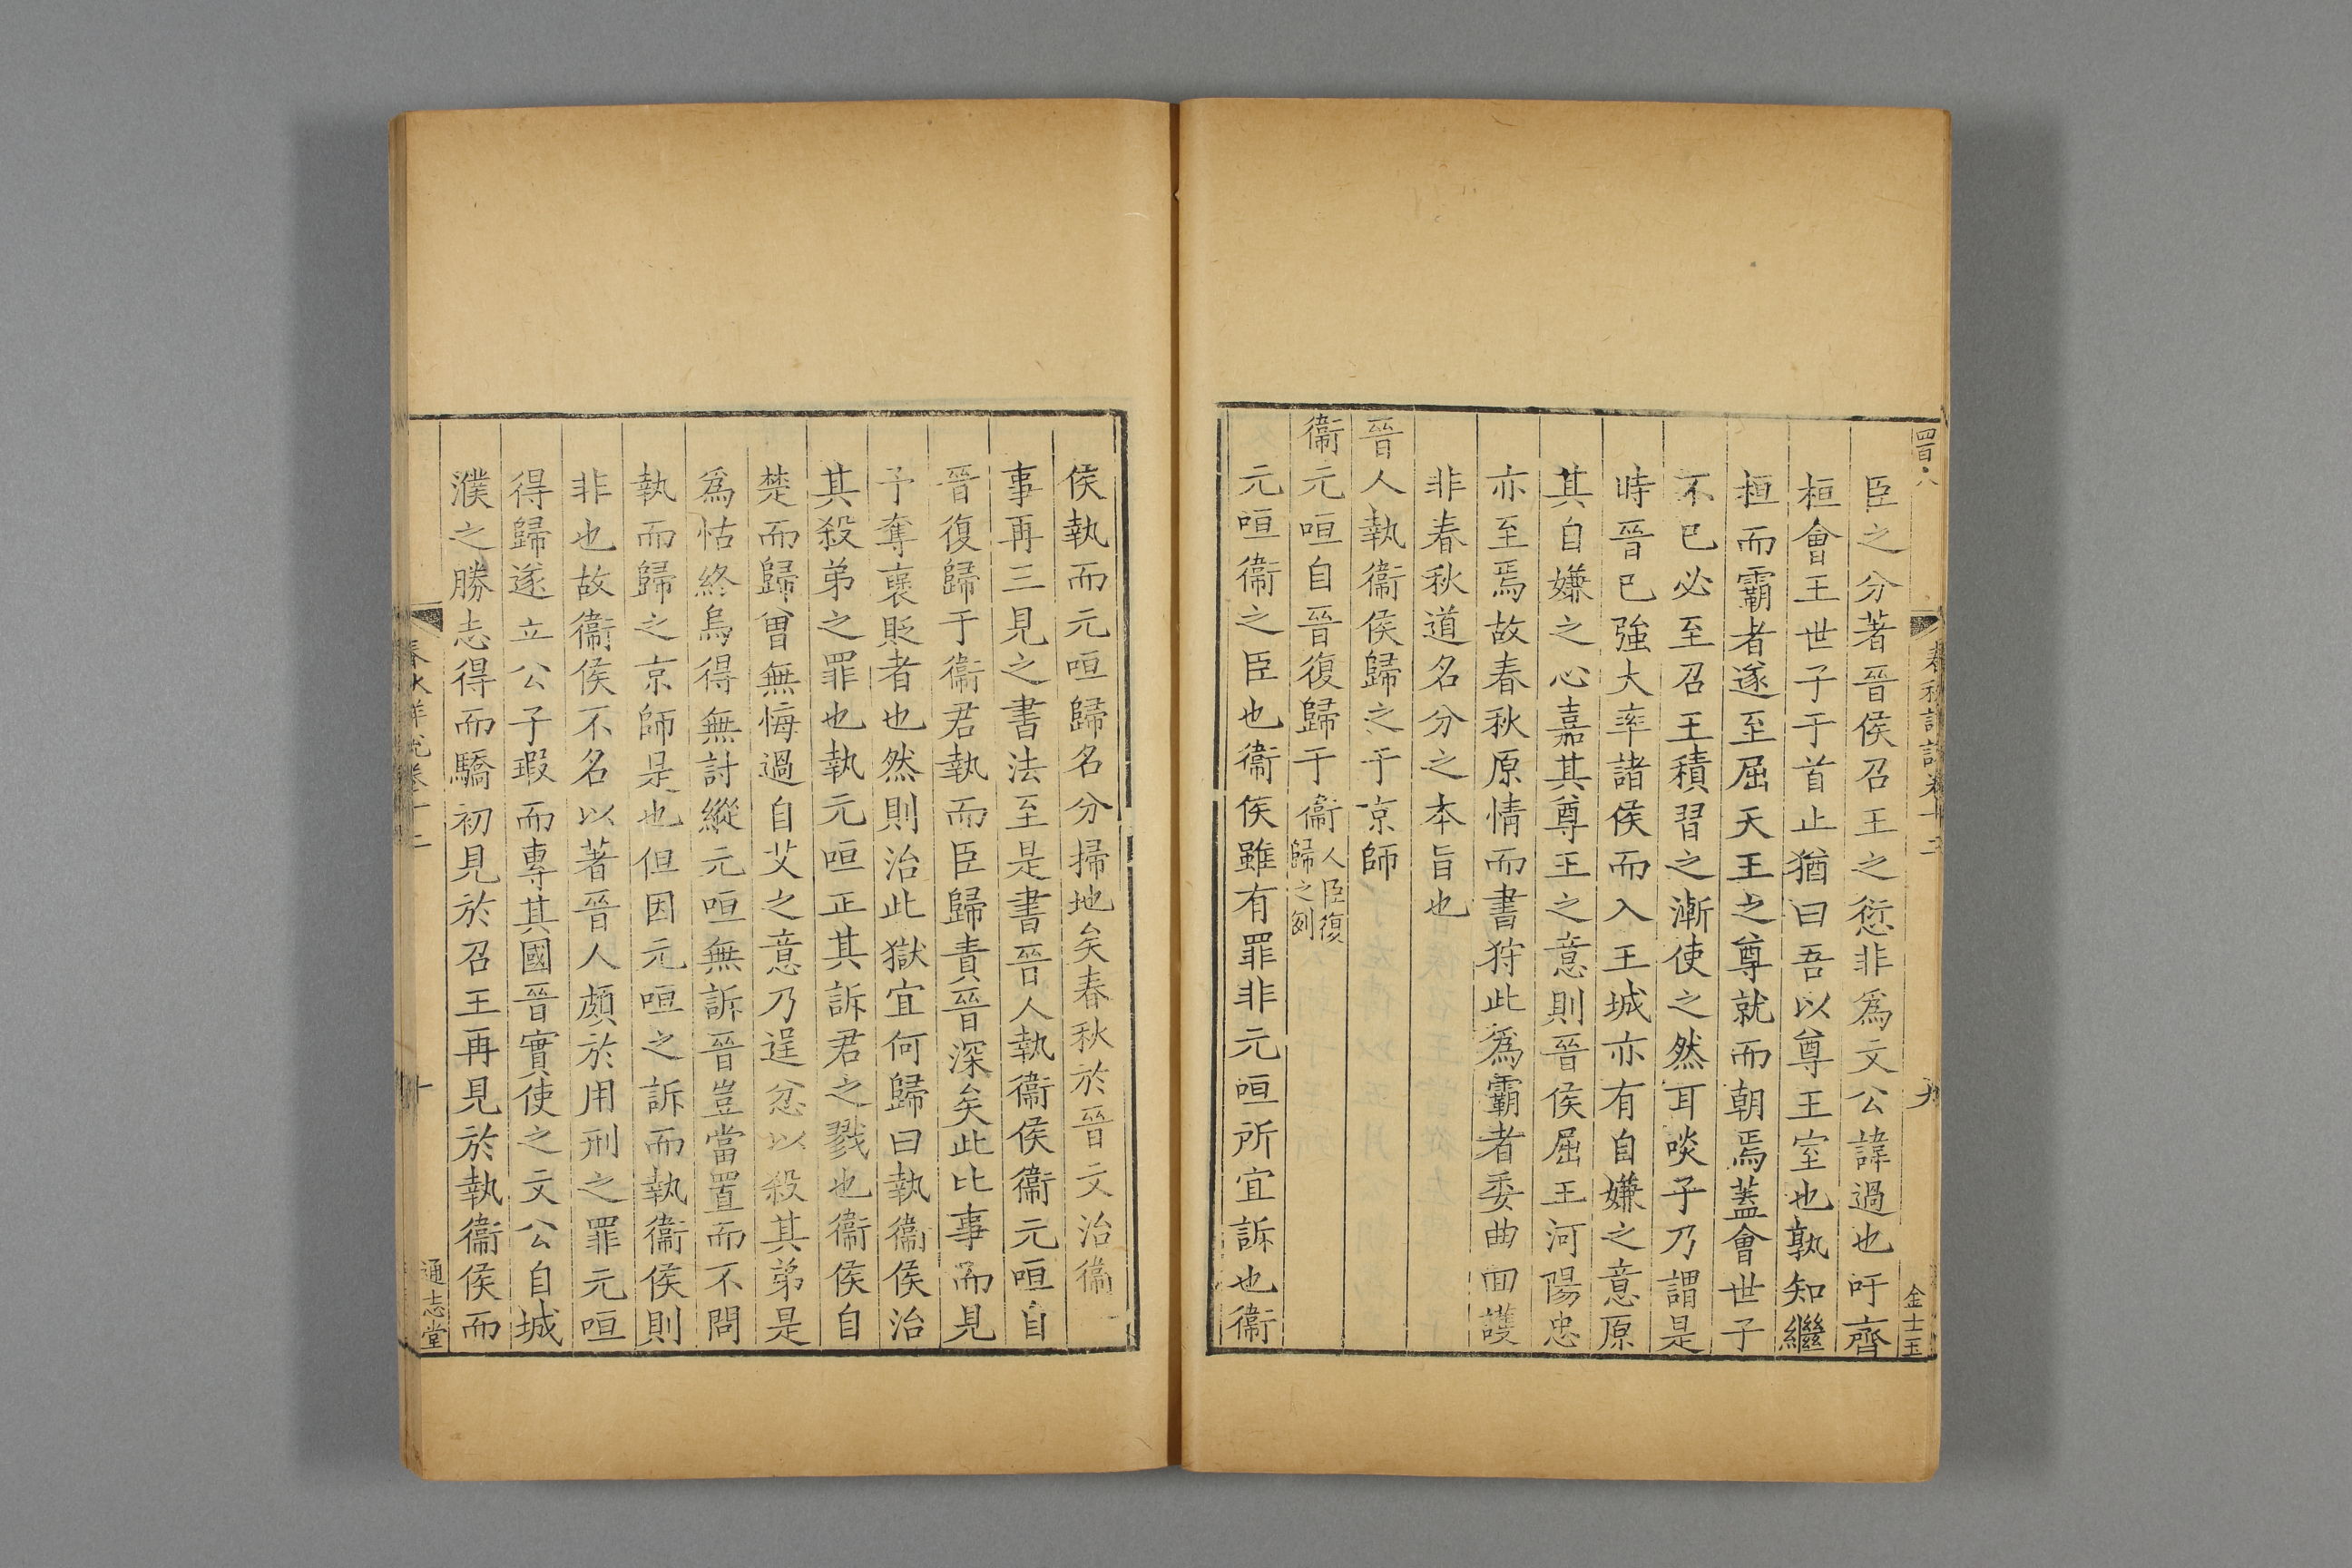 四百六
春秋詳說卷十三
九
金士玉
臣之分著晉侯召王之愆非爲文公諱過也吁齊
桓會王世子于首止猶曰吾以尊王室也孰知繼
桓而霸者遂至屈天王之尊就而朝焉蓋會世子
不已必至召王積習之漸使之然耳啖子乃謂是
時晉已強大率諸侯而入王城亦有自嫌之意原
其自嫌之心嘉其尊王之意則晉侯屈王河陽忠
亦至焉故春秋原情而書狩此爲霸者委曲回護
非春秋道名分之本旨也
晉人執衞侯歸之于京師
衞元咺自晉復歸于衞人臣復歸之例
元咺衞之臣也衞侯雖有罪非元咺所宜訴也衞
侯執而元咺歸名分掃地矣春秋於晉文治衞一
事再三見之書法至是書晉人執衞侯衞元咺自
晉復歸于衞君執而臣歸責晉深矣此比事而見
予奪褒貶者也然則治此獄宜何歸曰執衞侯治
其殺弟之罪也執元咺正其訴君之戮也衞侯自
楚而歸曾無悔過自艾之意乃逞忿以殺其弟是
爲怙終烏得無討縱元咺無訴晉豈當置而不問
執而歸之京師是也但因元咺之訴而執衞侯則
非也故衞侯不名以著晉人頗於用刑之罪元咺
得歸遂立公子瑕而專其國晉實使之文公自城
濮之勝志得而驕初見於召王再見於執衞侯而
春秋詳說卷十三
十
通志堂